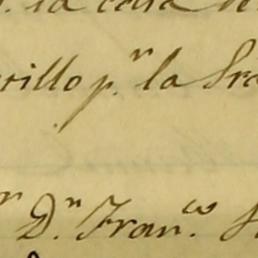 la casa
rillo p.r la Sra
Dn. Fran.co